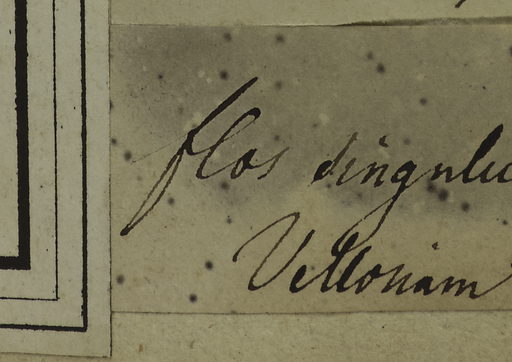 flos singulu
Vellosiam